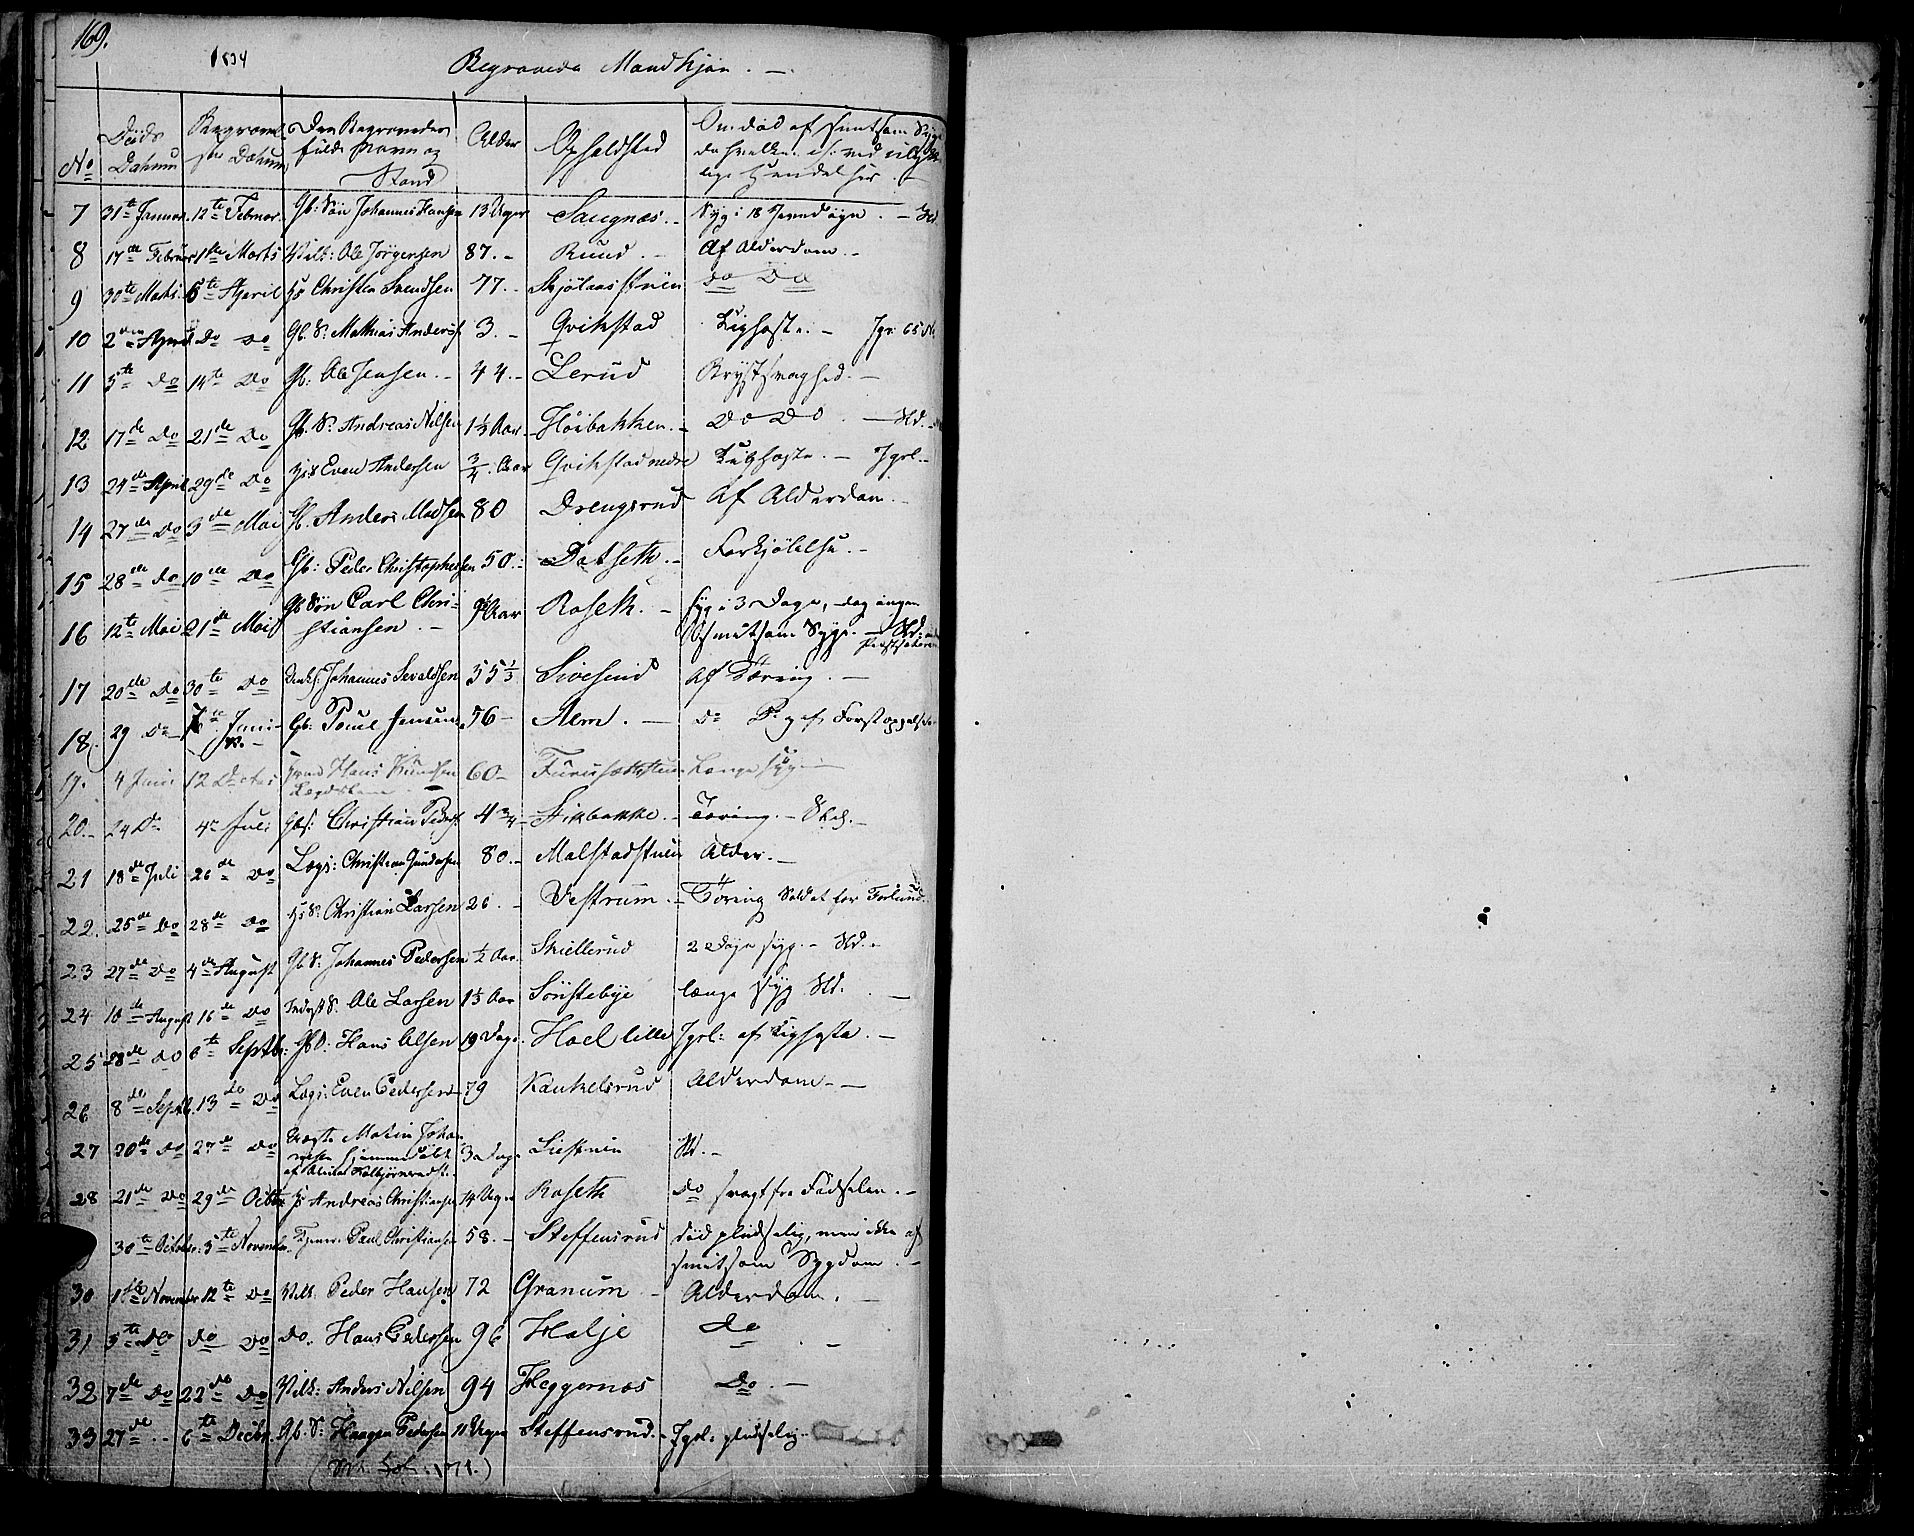 169.
1834
Begravede Mandkjøn. —
No
Døds Datum
Begravel- ses Datum
Den Begravedes fulde Navn og Stand
Alder
Opholdsted
Om død af smitsom Syge
da hvilken, it: ved ulyk-
lige Hændelser.
7 31te Januar. 12te Februar. Gb: Søn Johannes Hansen 13 Uger Saugnæs. Syg i 18
8 17de Februar 1ste Marts Vilk: Ole Jørgensen 87. Ruud. Af Alderdom.
9 30te Marts. 6te April Hs Christen Svendsen 77. Skjølaasstuen Do Do
10 2den April Do Do Gb. S. Mathias Anders. 3. Qvikstad Kighoste.
11 5te Do 14te Do Gb: Ole Jensen. 44. Lerud Brystsvaghed.
12 17de Do 21de Do Gb. S. Andreas Nilsen 1½ Aar. Høibakken. Do Do. Ud.
13 24de April 29de Do Hs S Even Andersen ¾ Aar Qvikstad nedre Kighoste. Jgrl.
14 27de Do 3de Mai G. Anders Madsen 80 Drengsrud Af Alderdom.
15 28de Do 10de Do Gb: Peder Christophersen 50. Datseth. Forkjølelse.
16 12te Mai 21de Mai Gb Søn Carl Chri-
stiansen. Aar Roseth. Syg i 3 Dage, dog ingen
smitsom Syge.
17 20de Do 30te Do Johannes Sevaldsen 55½ Sivesind Af Tæring.
18. 29 Do Juni Gb: Poul Jensen 56 Alm. Do
19. 4 Juni 12 Do Hans Knudsen 60 Furusætstuen Længe syg
Lægdslem
20. 24 Do 4de Juli Gbs: Christian Peders. 4¾ Fikbakke. Tæring.
21 18de Juli 26de Do Lægs: Christian Gundersen 80. Malstadstuen Alder.
22. 25de Do 28de Do Hs S. Christian Larsen 26. Vestrum. Tæring Soldat
23 27de Do 4de August Gb S. Johannes Pedersen ½ Aar. Skiellerud 2 Dage syg. Ud.
24 10de August 16de Do Inderst S. Ole Larsen 1½ Aar Sønstebye længe syg Ud.
25 28de Do 6te Septb: Gb S: Hans Olsen 19 Dage. Hoel lille Jgrl: af Kighoste.
26 8de Septb. 13de Do Lægs: Even Pedersen 79 Kankelsrud Alderdom.
27 20de Do 27de Do Uægte Matin Johan-
nesen hjemmedøbt 3 Dage Liestuen Ud.
28 21de Do 29de Octbr Hs Andreas Christiansen 14 Uger Roseth Do svagt fra Fødselen.
30te October. 5te Novembr. Paul Christiansen 58. Steffensrud død pludselig, men ikke af
smitsom Sygdom.
30 1ste November 12te Do Vilk. Peder Hansen 72 Granum Alderdom.
31 5te Do Do Do Do. Hans Pedersen 96 Halje Do
32 7de Do 22de Do Vilk: Anders Nilsen 94 Heggernæs Do.
33 27de 6te Decbr. Gb. S: Haagen Pedersen 11 Uger Steffensrud. Jgrl: pludselig.